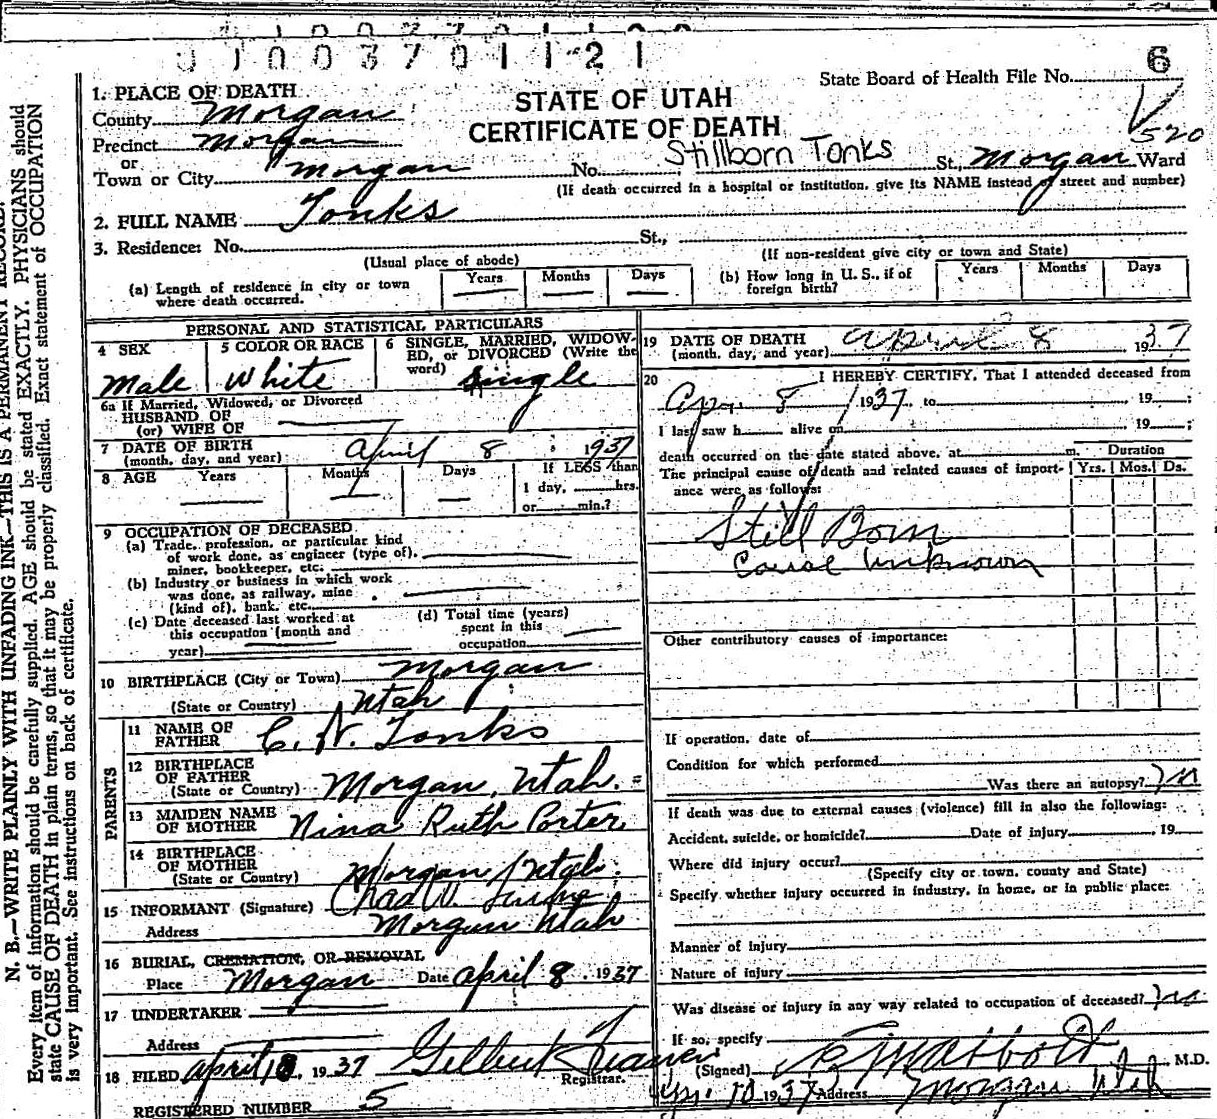 1003701121
6
State Board of Health File No.
520
STATE OF UTAH
CERTIFICATE OF DEATH
1. PLACE OF DEATH
County Morgan
Precinct Morgan
or
Town or City Morgan No. Stillborn Tonks St., Morgan Ward
(If death occurred in a hospital or institution, give its NAME instead of street and number)
2. FULL NAME Tonks
3. Residence: No. St.,
(Usual place of abode) (If non-resident give city or town and State)
(a) Length of residence in city or town where death occurred. Years Months Days
(b) How long in U. S., if of foreign birth? Years Months Days
PERSONAL AND STATISTICAL PARTICULARS
4 SEX Male
5 COLOR OR RACE White
6 SINGLE, MARRIED, WIDOWED, or DIVORCED (Write the word) Single
6a If Married, Widowed, or Divorced
HUSBAND OF
(or) WIFE OF
7 DATE OF BIRTH (month, day, and year) April 8 1937
8 AGE Years Months Days If LESS than 1 day, hrs. or min.?
9 OCCUPATION OF DECEASED
(a) Trade, profession, or particular kind
of work done, as engineer (type of),
miner, bookkeeper, etc.
(b) Industry or business in which work
was done, as railway, mine
(kind of), bank, etc.
(c) Date deceased last worked at
this occupation (month and
year)
(d) Total time (years)
spent in this
occupation
10 BIRTHPLACE (City or Town) Morgan
(State or Country) Utah
PARENTS
11 NAME OF FATHER C. W. Tonks
12 BIRTHPLACE OF FATHER (State or Country) Morgan, Utah.
13 MAIDEN NAME OF MOTHER Nina Ruth Porter
14 BIRTHPLACE OF MOTHER (State or Country) Morgan, Utah.
15 INFORMANT (Signature)
Address Morgan Utah
16 BURIAL, CREMATION, OR REMOVAL
Place Morgan Date April 8, 1937
17 UNDERTAKER
Address
18 FILED April 1937 Gilbert Registrar.
REGISTERED NUMBER 5
19 DATE OF DEATH (month, day, and year) April 8 1937
20 I HEREBY CERTIFY, That I attended deceased from
Apr. 8, 1937, to 19 ;
I last saw h alive on 19 ;
death occurred on the date stated above, at m.
The principal cause of death and related causes of importance were as follows:
Duration
Yrs. Mos. Ds.
Still Born
Cause Unknown
Other contributory causes of importance:
If operation, date of
Condition for which performed
Was there an autopsy? no
If death was due to external causes (violence) fill in also the following:
Accident, suicide, or homicide? Date of injury 19
Where did injury occur?
(Specify city or town, county and State)
Specify whether injury occurred in industry, in home, or in public place:
Manner of injury
Nature of injury
Was disease or injury in any way related to occupation of deceased? no
If so, specify
(Signed) M.D.
Apr. 10 1937 Address Morgan Utah
N. B.—WRITE PLAINLY WITH UNFADING INK—THIS IS A PERMANENT RECORD.
Every item of information should be carefully supplied. AGE should be stated EXACTLY. PHYSICIANS should
state CAUSE OF DEATH in plain terms, so that it may be properly classified. Exact statement of OCCUPATION
is very important. See instructions on back of certificate.